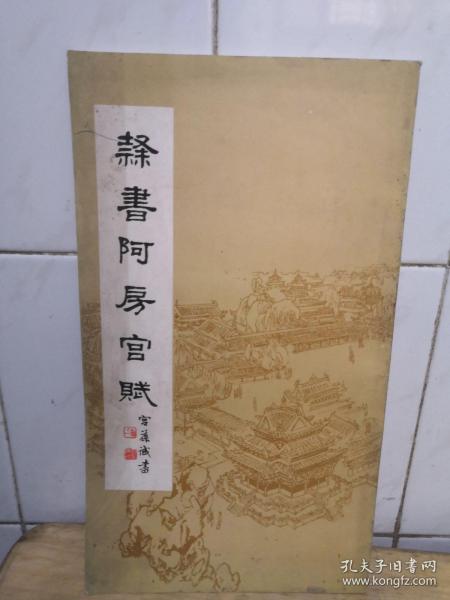 隸書阿房宫賦
宫葆誠書
孔夫子旧书网
www.kongfz.com